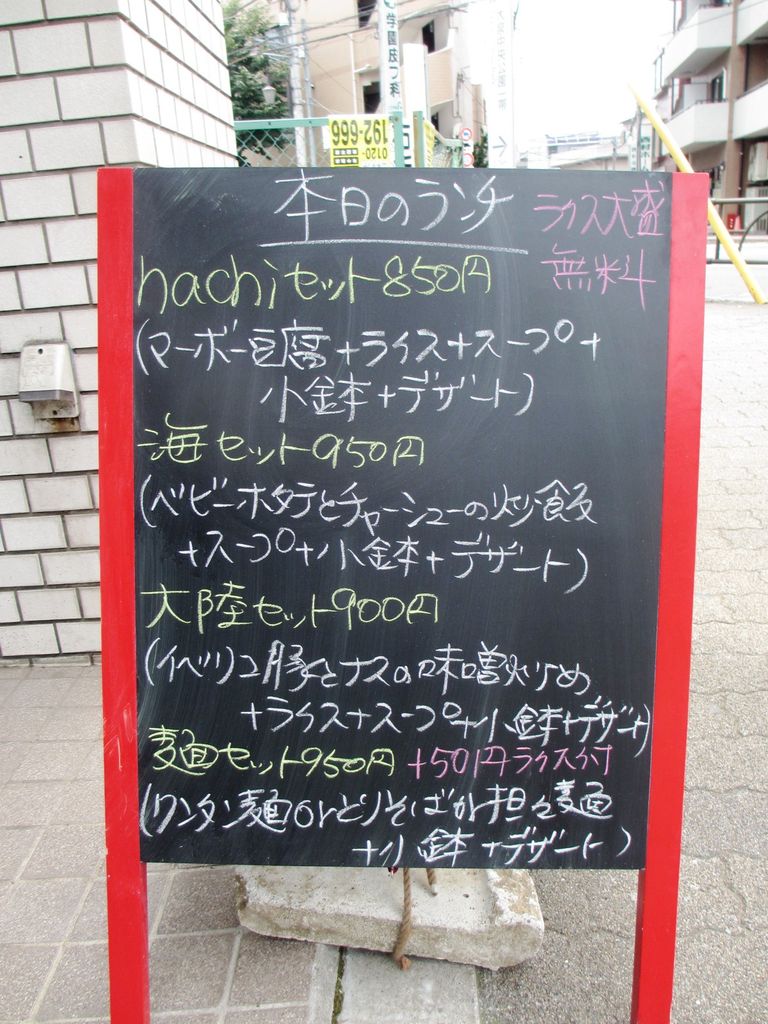 学園皮フ科
192-666
0120
本日のランチ
ライス大盛
無料
hachiセット850円
(マーボー豆腐+ライス+スープ+
小鉢+デザート)
海セット950円
(ベビーホタテとチャーシューの炒飯
+スープ+小鉢+デザート)
大陸セット900円
(イベリコ豚とナスの味噌炒め
+ライス+スープ+小鉢+デザート)
麺セット950円 +50円ライス付
(ワンタン麺orとりそばか担々麺
+小鉢+デザート)